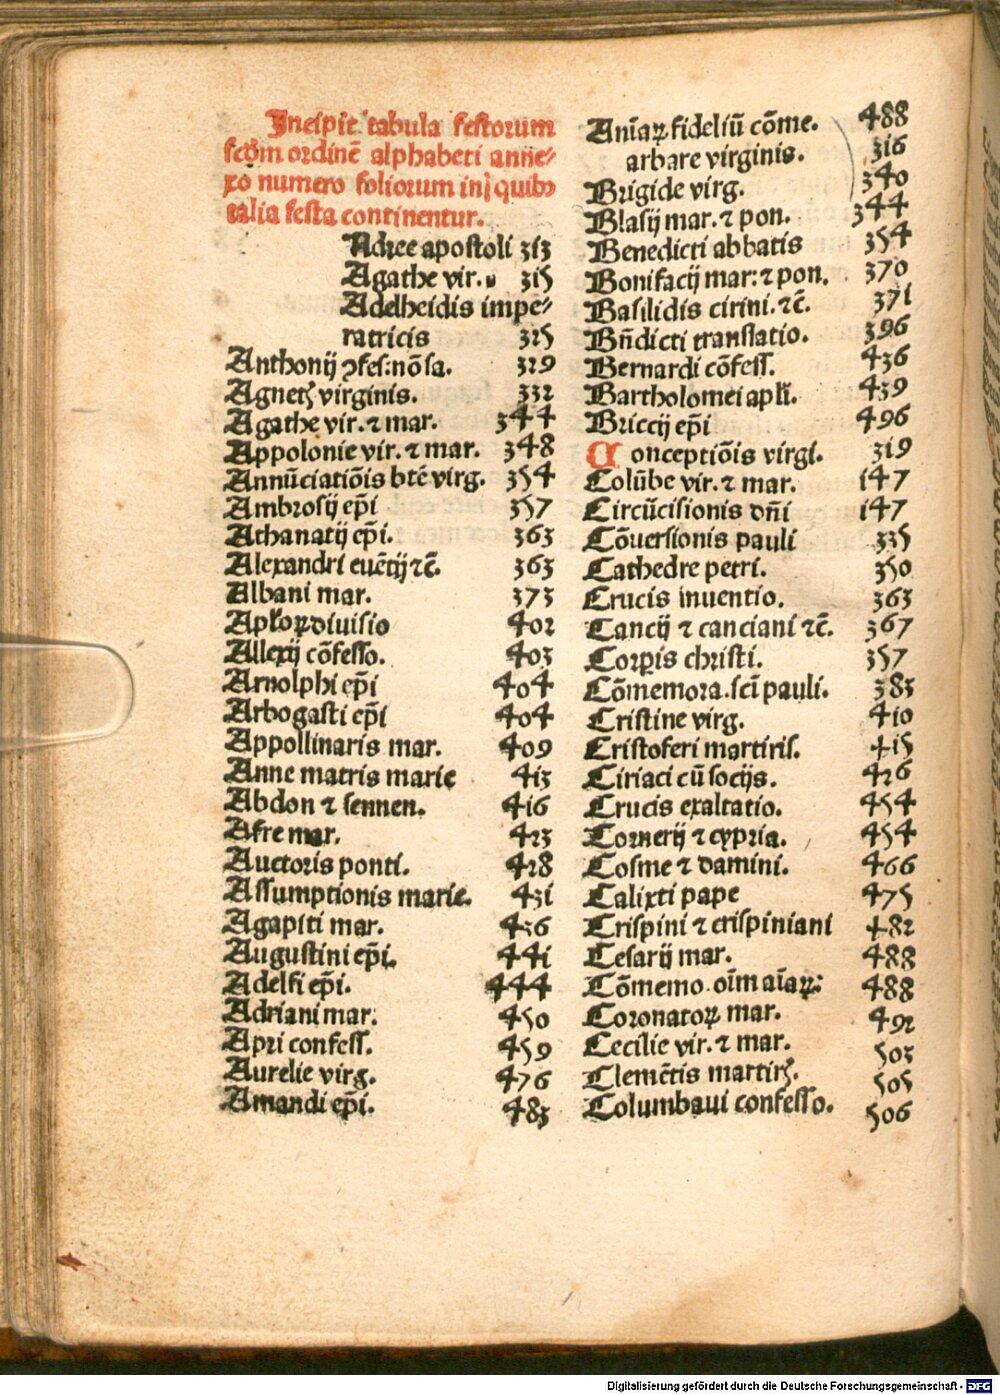 Incipit tabula festorum
scḋm ordinē alphabeti anne⸗
xo numero foliorum in quibꝰ
talia festa continentur.
Adree apostoli 313
Agathe vir. 315
Adelheidis impe⸗
ratricis 325
Anthonij ꝯfes: nō sa. 329
Agnetꝭ virginis. 332
Agathe vir. ⁊ mar. 344
Appolonie vir. ⁊ mar. 348
Annūciatiōis btē virg. 354
Ambrosij ep̄i 357
Athanatij ep̄i. 363
Alexandri euētij ⁊c̄. 363
Albani mar. 373
Apl'oꝝ diuisio 402
Allexij cōfesso. 403
Arnolphi ep̄i 404
Arbogasti ep̄i 404
Appollinaris mar. 409
Anne matris marie 413
Abdon ⁊ sennen. 416
Afre mar. 423
Auctoris ponti. 428
Assumptionis marie. 431
Agapiti mar. 436
Augustini ep̄i. 441
Adelfi ep̄i. 444
Adriani mar. 450
Apri confess. 459
Aurelie virg. 476
Amandi ep̄i. 483
Anīaꝝ fideliū cōme. 488
arbare virginis. 316
Brigide virg. 340
Blasij mar. ⁊ pon. 344
Benedicti abbatis 354
Bonifacij mar: ⁊ pon. 370
Basilidis cirini. ⁊c̄. 371
Bn̄dicti translatio. 396
Bernardi cōfess. 436
Bartholomei apl'i. 439
Briccij ep̄i 496
Conceptiōis virgi. 319
Colūbe vir. ⁊ mar. 147
Circūcisionis dn̄i 147
Cōuersionis pauli 335
Cathedre petri. 350
Crucis inuentio. 363
Cancij ⁊ canciani ⁊c̄. 367
Corꝑis christi. 357
Cōmemora. sci pauli. 383
Cristine virg. 410
Cristoferi martiris. 415
Ciriaci cū socijs. 426
Crucis exaltatio. 454
Cornerij ⁊ cypria. 454
Cosme ⁊ damini. 466
Calixti pape 475
Crispini ⁊ crispiniani 482
Cesarij mar. 488
Cōmemo. oīm aīaꝝ: 488
Coronatoꝝ mar. 492
Cecilie vir. ⁊ mar. 503
Clemētis martirꝭ. 505
Columbaui confesso. 506
Digitalisierung gefördert durch die Deutsche Forschungsgemeinschaft - DFG